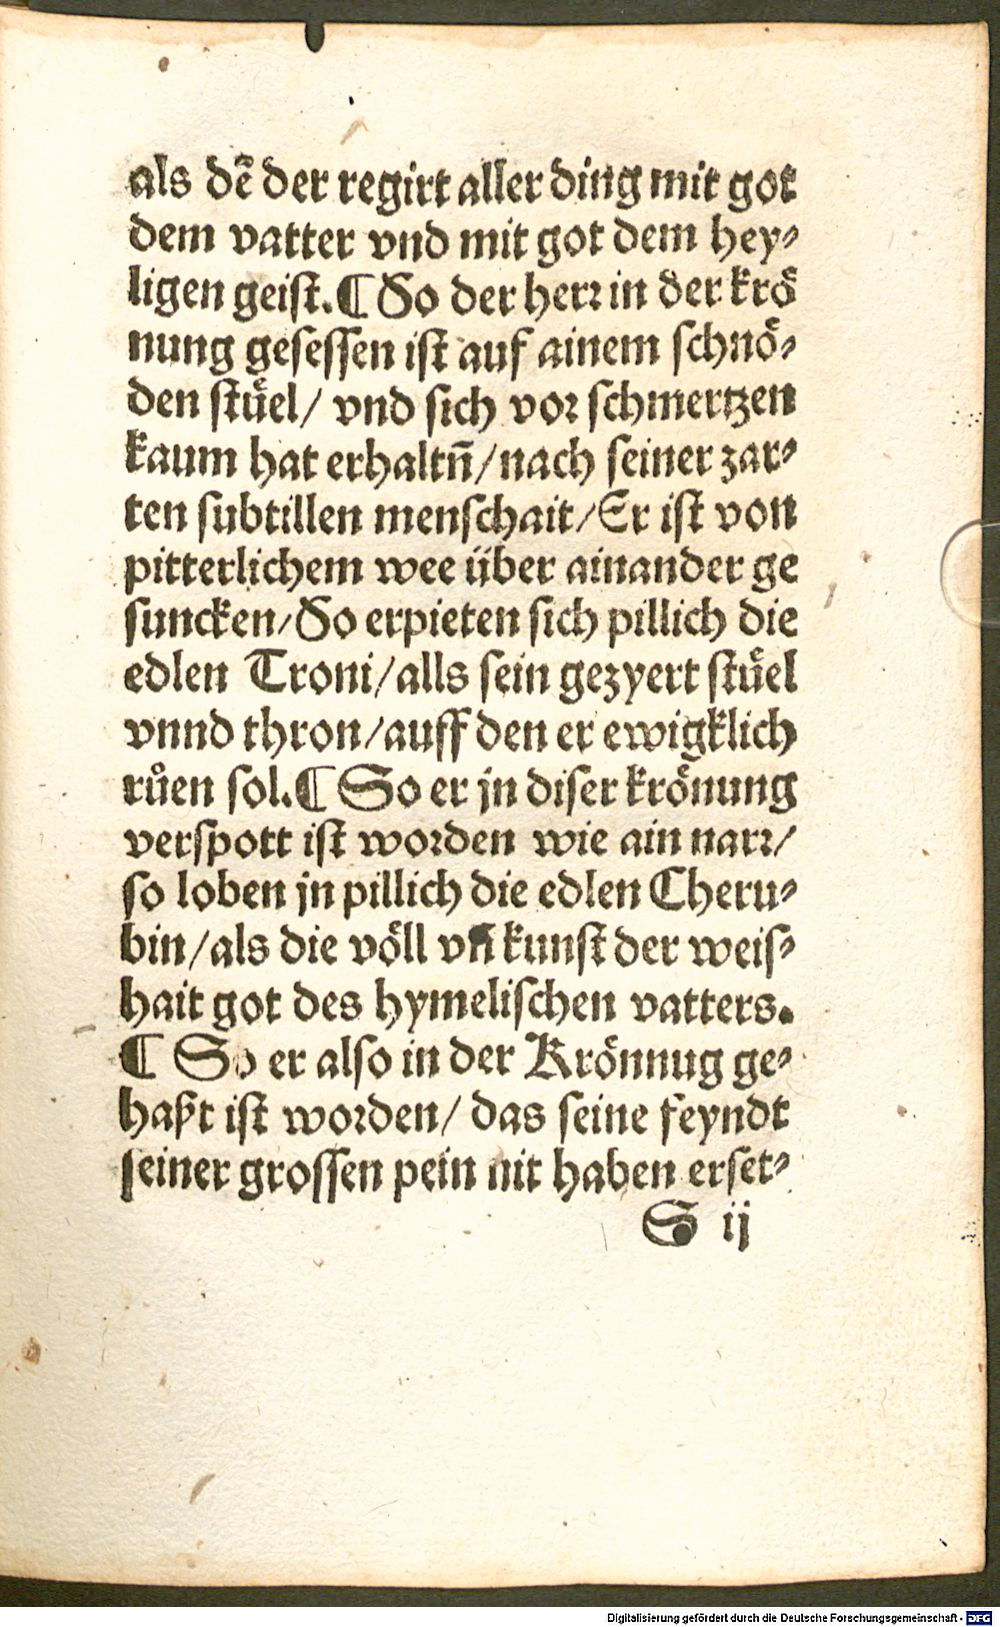 als dē der regirt aller ding mit got
dem vatter vnd mit got dem hey⸗
ligen geist. ¶ So der herꝛ in der krö
nung gesessen ist auf ainem schnö⸗
den stuͤel/ vnd sich voꝛ schmertzen
kaum hat erhaltn̄/ nach seiner zar⸗
ten subtillen menschait/ Er ist von
pitterlichem wee über ainander ge
suncken/ So erpieten sich pillich die
edlen Troni/ alls sein gezyert stuͤel
vnnd thron/ auff den er ewigklich
ruͦen sol. ¶ So er jn diser krönung
verspott ist woꝛden wie ain narꝛ/
so loben jn pillich die edlen Cheru⸗
bin/ als die völl vn̄ kunst der weis⸗
hait got des hymelischen vatters.
¶ So er also in der Krönnug ge⸗
haßt ist woꝛden/ das seine feyndt
seiner grossen pein nit haben erset⸗
S ij
Digitalisierung gefördert durch die Deutsche Forschungsgemeinschaft - DFG